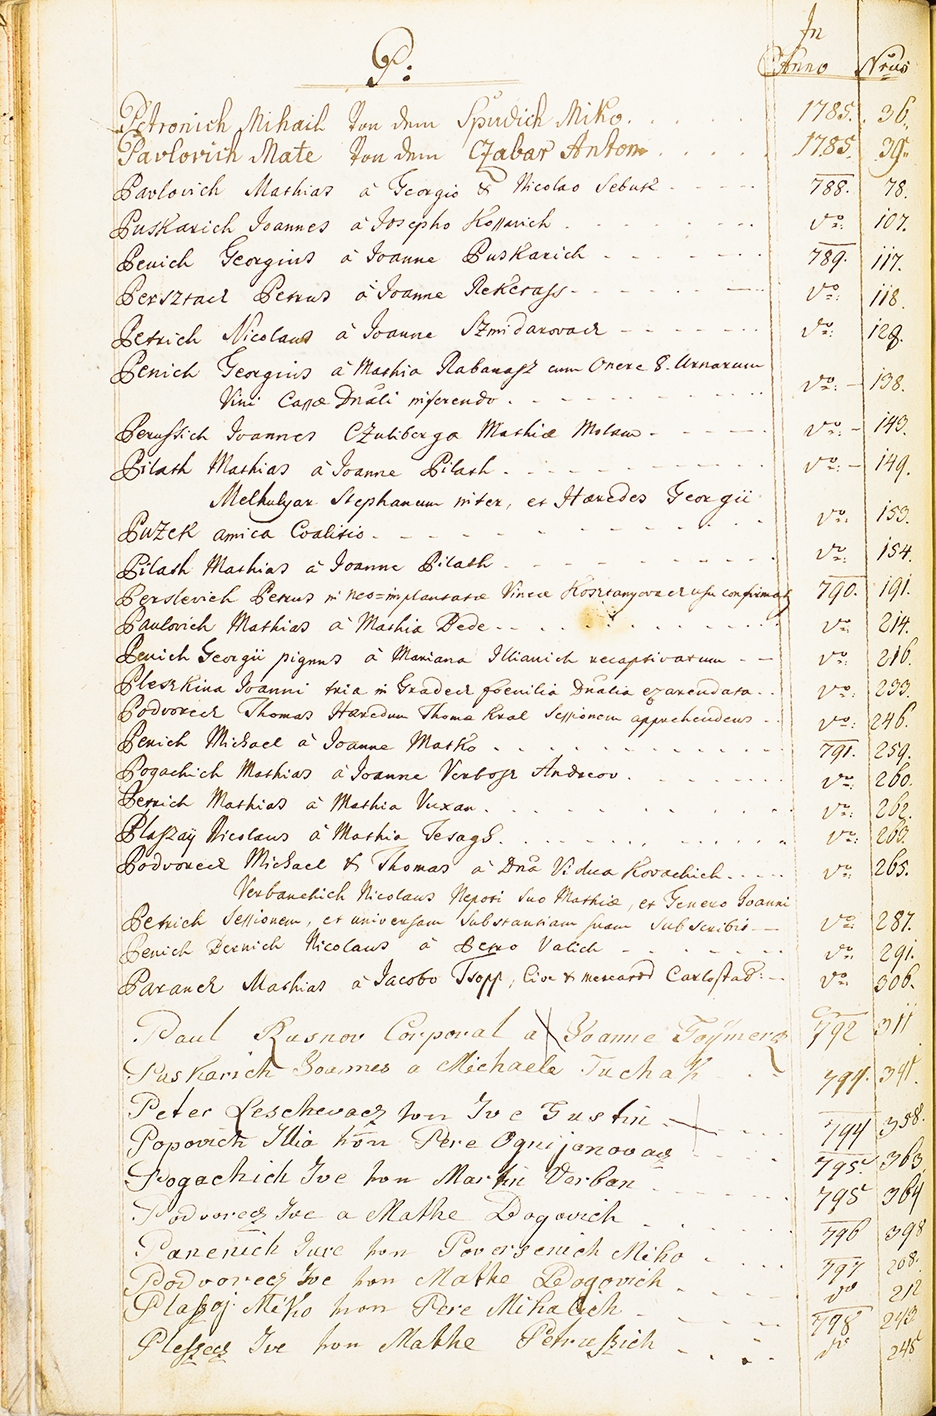 P:
In
Anno Nrus
Petronich Mihail von dem Spudich Miko. 1785. 36.
Pavlovich Mate von dem Czabar Anton 1785. 39.
Pavlovich Mathias à Georgio & Nicolao Sebusk 788. 78.
Puskarich Joannes à Josepho Kossovich do: 107.
Penich Georgius à Joanne Puskarich 789. 117.
Persztacz Petrus à Joanne Rekerass do: 118.
Petrich Nicolaus à Joanne Szmidarovacz do: 128.
Penich Georgius à Mathia Rabanasz cum Onere 8. Urnarum
Vini Cassæ Dnali inferendo. do: 138.
Perussich Joannes Czuliberga Mathiæ Molam do: 143.
Pilash Mathias à Joanne Pilash do: 149.
Melhulyar Stephanum inter, et Hæredes Georgii
Puzek amica Coalitio do: 153.
Pilash Mathias à Joanne Pilash do: 154.
Perslevich Petrus in neo=implantatæ Vineæ Kosztanyovacz usu confirmat. 790. 191.
Pavlovich Mathias à Mathia Dede do: 214.
Penich Georgii pignus à Mariana Illianich recaptivatum do: 216.
Pleszkina Joanni tria in Gradecz foenilia Dnalia exarendata do: 233.
Podvorecz Thomas Hæredum Thomæ Kral Sessionem apprehendens do: 246.
Penich Michael à Joanne Matko 791. 259.
Pogachich Mathias à Joanne Verbosz Andreov. do: 260.
Petrich Mathias à Mathia Vuxan. do: 262.
Plaszaÿ Nicolaus à Mathia Fesagh. do: 263.
Podvorecz Michael & Thomas à Dna Vidua Kovachich do: 265.
Verbanchich Nicolaus Nepoti suo Mathiæ, et Genero Joanni
Petrich Sessionem, et universam Substantiam suam subscribit do 287.
Penich Dernich Nicolaus à Petro Valich do: 291.
Paranch Mathias à Jacobo Tsopp, Cive & mercator Carlostad: do: 306.
Paul Rusnov Corporal a Joanne Toÿmerz 792 311
Puskarich Joannes a Michaele Tuchak 794. 341.
Peter Leschevacz von Ive Gustin 794 358.
Popovich Illia von Pere Ognijanovacz 795. 363.
Pogachich Ive von Martin Verban 795 364
Podvorecz Ive a Mathe Dogovich 796 398
Panenich Jure von Poversenich Miko 797 208.
Podvorecz Ive von Mathe Dogovich do 212
Plaszaj Miko von Pere Mihalich 798 243
Pleszecz Ive von Mathe Petruszich do 245